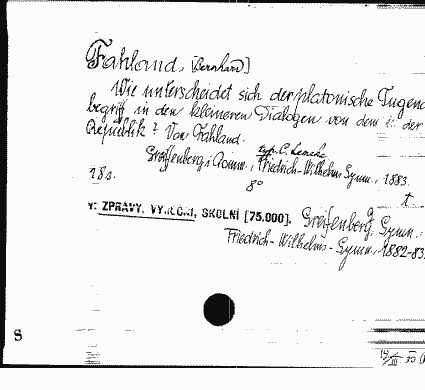 Fahland, [Bernhard]
Wie unterscheidet sich der platonische Tugend
begriff in den kleineren Dialogen von dem i: der
Republik? Von Fahland.
typ. C. Lemcke
Greifenberg i Pomm., Friedrich-Wilhelms Gymn., 1883.
18 s. 8°
t.
V: ZPRÁVY, VÝROČNÍ, ŠKOLNÍ [75.000]. Greifenberg, Gymn.:
Friedrich-Wilhelms-Gymn., 1882-83.
S